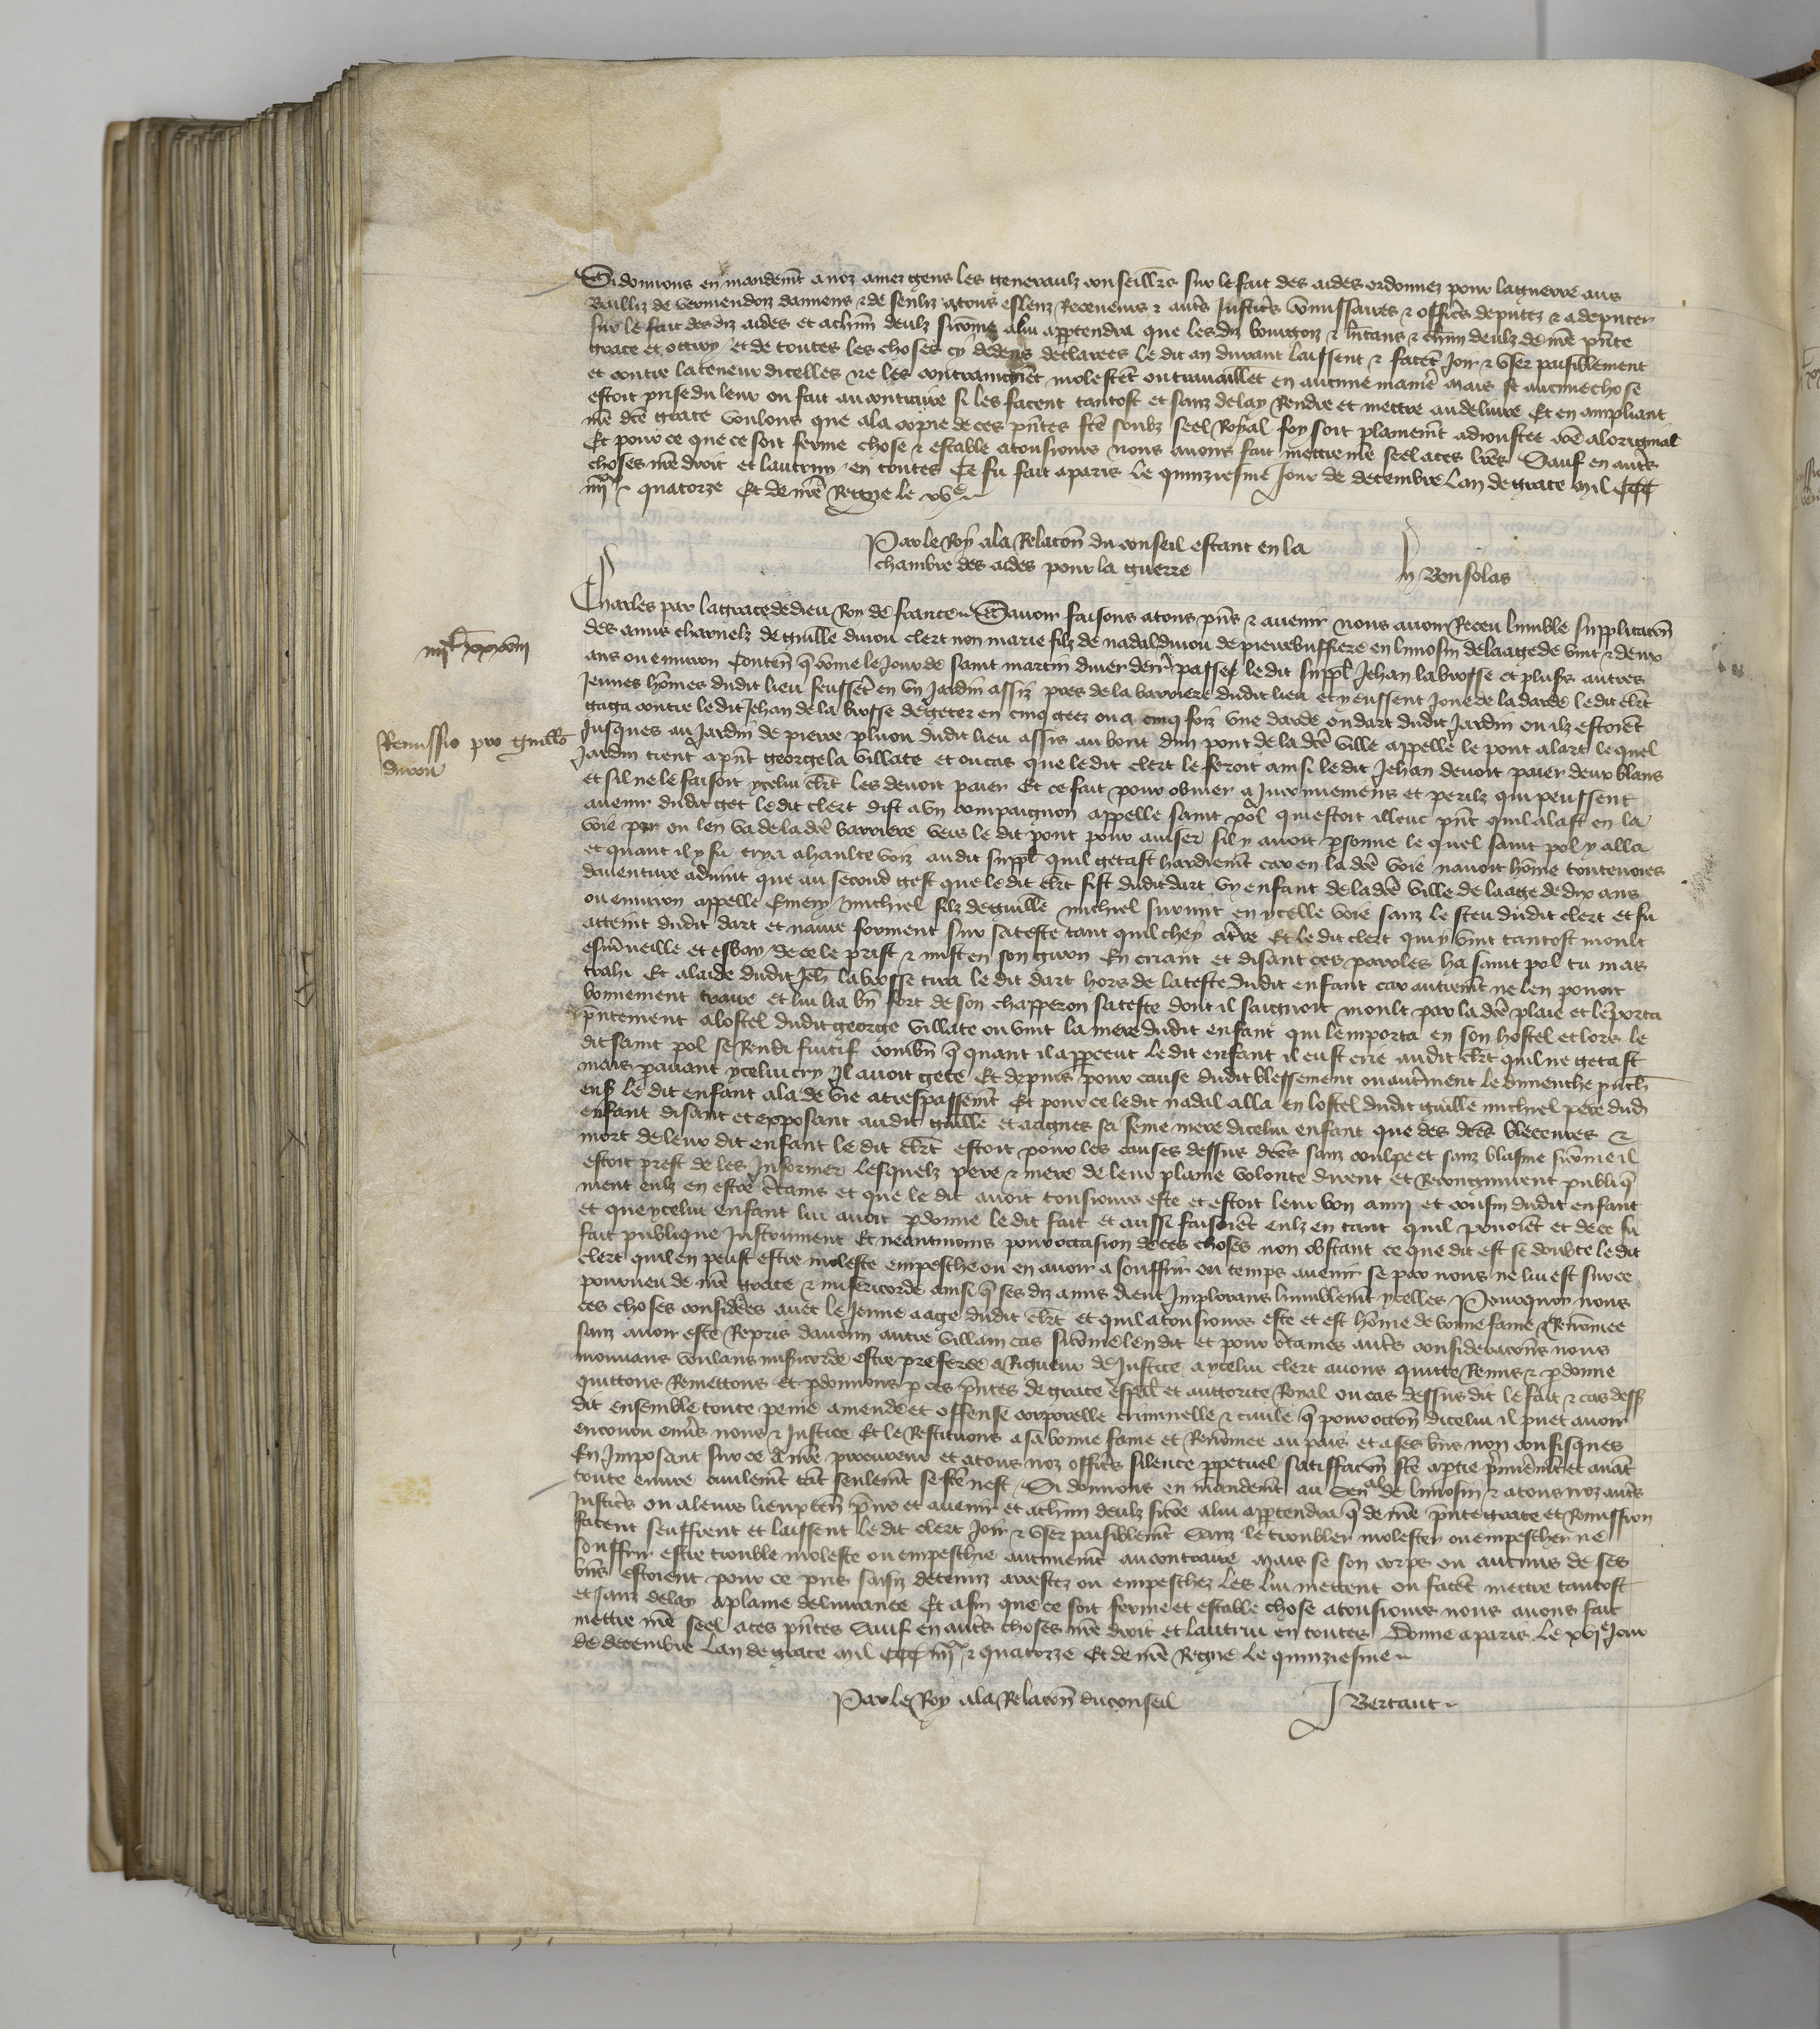 Si donnons en mandemt a noz amez gens les generaulx conseillrs sur le fait des aides ordonnez pour la guerre aus
Bailliz de vermendoiz damiens & de senliz a tous esleuz Receveurs & autrs Justicrs Commissaires & officrs deputez & a deputer
sur le fait des diz aides et a chun deulz sicome a lui appartendra que les diz bourgois & hitans & chun deulz de nre pnte
grace et ottroy et de toutes les choses cy dedens declarees le dit an durant laissent & facet Joir & user paisiblement
et contre la teneur dicelles ne les contraingnet molestet ou travaillet en aucune maniere Mais se aucune chose
estoit prise du leur ou fait au contraire si les facent tantost et sanz delay Rendre et mettre au delivre Et en ampliant
nre dce grace voulons que a la copie de ces pntes fce soubz seel Royal foy soit plainemt adioustee coe a loriginal
Et pour ce que ce soit ferme chose & estable a tousiours nous avons fait mettre nre seel a ces lres Sauf en autrs
choses nre droit et lautruy en toutes Ce fu fait a paris le quinziesme Jour de decembre lan de grace mil CCC
iiijxx & quatorze Et de nre Regne le xve
Par le Roy a la Relacon du conseil estant en la
chambre des aides pour la guerre
Bonsolas
iiijc xxxviij
Charles par la grace de dieu Roy de france Savoir faisons a tous pns & avenir nous avoir Receu lumble supplicacon
des amis charnelz de guille divou clerc non marie filz de nadal divou de pierrebuffiere en limosin de laage de vint & deux
ans ou environ Conten q come le Jour de saint martin diver denr passe le dit suppl Jehan la brosse et plusrs autres
Jeunes homes dudit lieu feusset en un Jardin assiz pres de la barriere dudit lieu et y eussent Joue de la darde le dit clrt
gaga contre le dit Jehan de la brosse de geter en cinq geez ou a cinq foiz une darde ou dart dudit Jardin ou ilz estoient
Remissio pro Guillo
divou
Jusques au Jardin de pierre pluou dudit lieu assis au bout dun pont de la dce ville appelle le pont a lart le quel
Jardin tient a pnt george la villate et ou cas que le dit clerc le feroit ainsi le dit Jehan devoit paier deux blans
et sil ne le faisoit ycelui clrt les devoit paier Et ce fait pour obvier a Inconveniens et perilz qui peussent
avenir dudit get le dit clerc dist a un compaignon appelle saint pol qui estoit illeuc pnt quil alast en la
voie par ou len va de la dce barriere vers le dit pont pour aviser sil y avoit psonne le quel saint pol y alla
et quant il y fu crya a haulte voiz au dit suppl quil getast hardiemt car en la dce voie navoit home toutevoies
daventure advint que au second gest que le dit clrt fist dudit dart un enfant de la dce ville de laage de dix ans
ou environ appelle Emery michiel filz de guille michiel survint en ycelle voie sanz le sceu dudit clerc et fu
atteint dudit dart et navre forment sur sa teste tant quil chey a tre Et le dit clerc qui y vint tantost moult
esmveille et esbay de ce le prist & mist en son giron En criant et disant ces paroles ha saint pol tu mas
trahi Et a laide dudit Jeh la brosse tira le dit dart hors de la teste dudit enfant car autremt ne len povoit
bonnement traire et lui lia bn fort de son chapperon sa teste dont il saignoit moult par la dce plaie et lenporta
pntement a lostel dudit george villate ou vint la mere dudit enfant qui lemporta en son hostel et lors le
dit saint pol se Rendi fuitif combn q quant il apperceut le dit enfant il eust crie au dit clrt quil ne getast
mais pavant ycelui cry Il avoit gete Et depuis pour cause dudit blessement ou autrment le dimenche puch
ens le dit enfant ala de vie a trespassemt Et pour ce le dit nadal alla en lostel dudit guille michiel pere dud
enfant disant et exposant au dit guille et a agnes sa feme mere dicelui enfant que des dces bleceures &
mort de leur dit enfant le dit clrt estoit pour les causes dessus dces sanz coulpe et sanz blasme sicome il
estoit prest de les Informer lesquelz pere & mere de leur plaine volonte dirent et Recongnurent publiq
ment eulz en estre ctains et que le dit avoit tousiours este et estoit leur bon ami et cousin dudit enfant
et que ycelui enfant lui avoit pdonne le dit fait et aussi faisoient eulz en tant quil povoiet et de ce fu
fait publique Instrument Et neantmoins pour occasion de ces choses non obstant ce que dit est se doubte le dit
clerc quil en peust estre moleste empeschie ou en avoir a souffrir ou temps avenir se par nous ne lui est sur ce
pourveu de nre grace & misericorde ainsi q ses diz amis dient Implorans humblemt ycelles Pourquoy nous
ces choses considees avec le Jeune aage dudit clrt et quil a tousiours este et est home de bonne fame & Renomee
sanz avoir este Repris daucun autre villain cas sicome len dit et pour ctaines autrs consideracions nous
mouvans voulans misicorde estre preferee a Rigueur de Justice a ycelui clerc avons quitte Remis & pdonne
quittons Remettons et pdonnons p ces pntes de grace especl et auttorite Royal ou cas dessus dit le fait & cas dess
dit ensemble toute peine amende et offense corporelle criminelle & civile q pour occon dicelui il puet avoir
encouru envrs nous & Justice Et le Restituons a sa bonne fame et Renomee au pais et a ses bns non confisques
En Imposant sur ce a nre procureur et a tous noz officrs silence ppetuel satisfacon fce a ptie primieremt et avat
toute euvre civilemt tat seulemt se fce nest Si donnons en mandemt au senal de limosin & a tous noz autrs
Justicrs ou a leurs lieuxten pns et avenir et a chun deulz sicoe a lui appartendra q de nre pnte grace et Remission
facent seuffrent et laissent le dit clerc Joir & user paisiblemt sanz le troubler molester ou empescher ne
souffrir estre trouble moleste ou empeschie aucunemt au contraire Mais se son corps ou aucuns de ses
bns estoient pour ce pris saisiz detenuz arrestez ou empeschez les lui mettent ou facet mettre tantost
et sanz delay a plaine delivrance Et afin que ce soit ferme et estable chose a tousiours nous avons fait
mettre nre seel a ces pntes sauf en autrs choses nre droit et lautrui en toutes Donne a paris le xvje Jour
de decembre lan de grace mil CCC iiijxx & quatorze Et de nre Regne le quinziesme
Par le Roy a la Relacon du conseil
J Bertaut